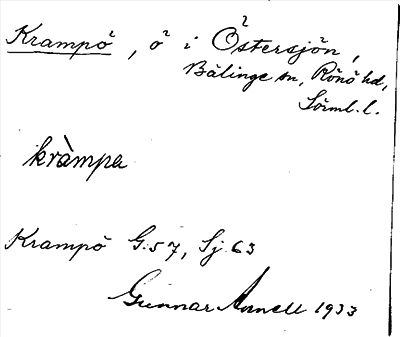 Krampö, ö i Östersjön,
Bälinge sn, Rönö hd,
Sörml. l.
kràmpa
Krampö G:57, Sj 63
Gunnar Arnell 1933